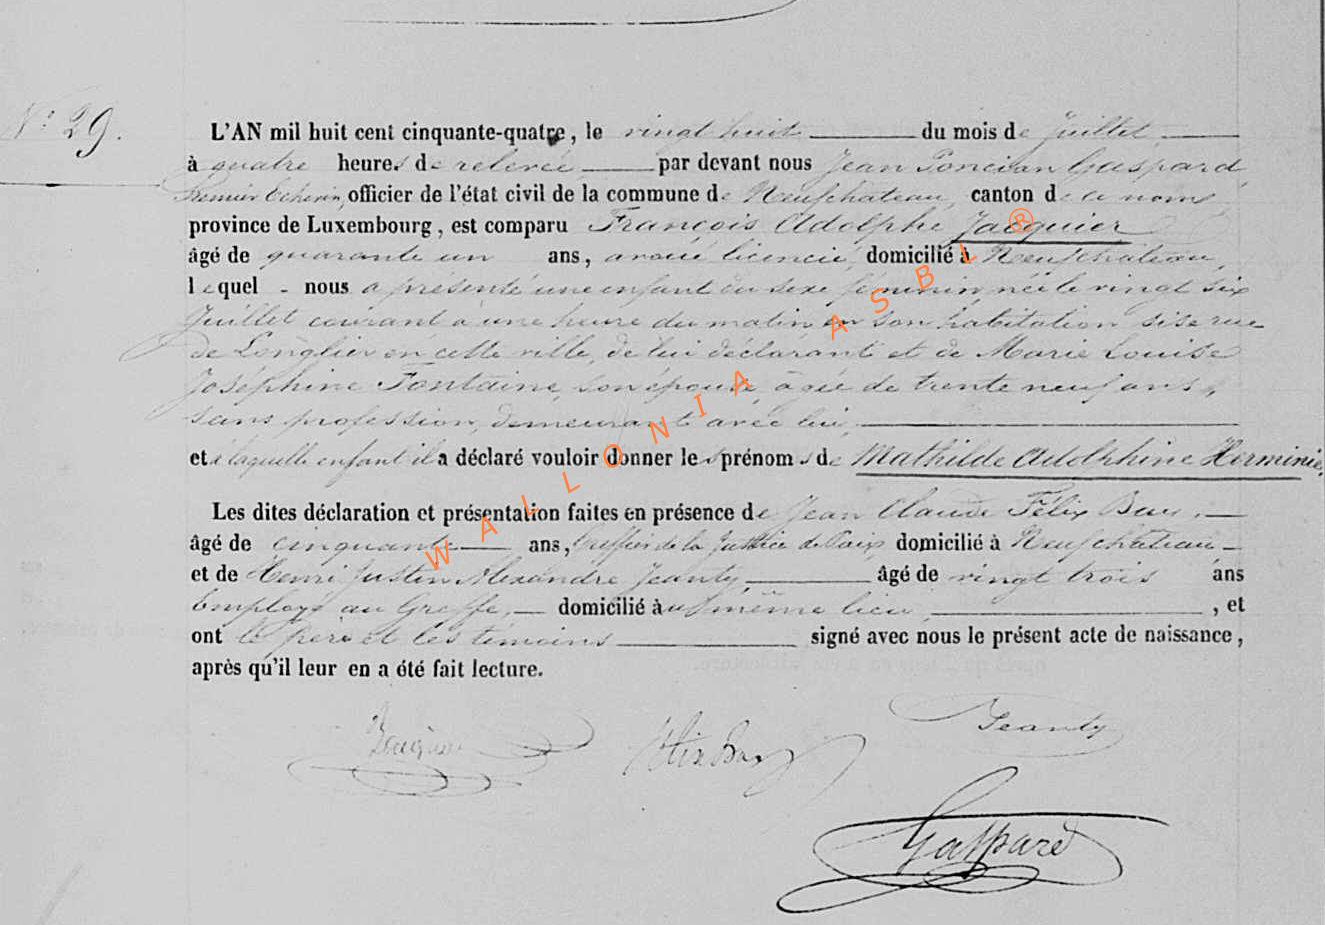 N° 29.
L'AN mil huit cent cinquante-quatre, le vingt huit du mois de Juillet
à quatre heures de relevée par devant nous Jean Poncian Gaspard,
Premier Echevin, officier de l'état civil de la commune de Neufchateau, canton de ce nom,
province de Luxembourg, est comparu François Adolphe Jacquier
âgé de quarante un ans, avoué licencié, domicilié à Neufchâteau,
lequel - nous a présenté une enfant du sexe féminin, née le vingt six
Juillet courant à une heure du matin en son habitation sise rue
de Longlier en cette ville, de lui déclarant et de Marie Louise
Joséphine Fontaine, son épouse, âgée de trente neuf ans,
sans profession, demeurant avec lui,
et à laquelle enfant il a déclaré vouloir donner les prénoms de Mathilde Adolphine Herminie,
Les dites déclaration et présentation faites en présence de Jean Claude Félix
âgé de cinquante ans, Greffier de la Justice de Paix domicilié à Neufchateau
et de Henri Justin Alexandre Jeanty, âgé de vingt trois ans
Employé au Greffe, domicilié au même lieu, , et
ont le père et les temoins signé avec nous le présent acte de naissance,
après qu'il leur en a été fait lecture.
Jeanty
Gaspard
WALLONIA ASBL ®